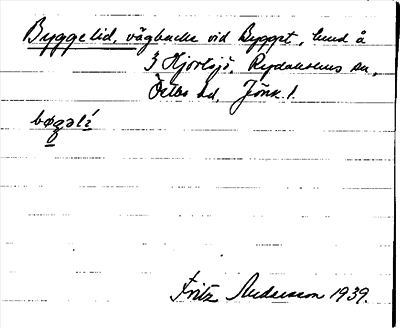 Byggelid, vägbacke vid Byggpt, lund å
3 Hjortsjö, Rydaholms sn,
Östbo hd, Jönk. l.
bøgəlí
Fritz Andersson 1939.